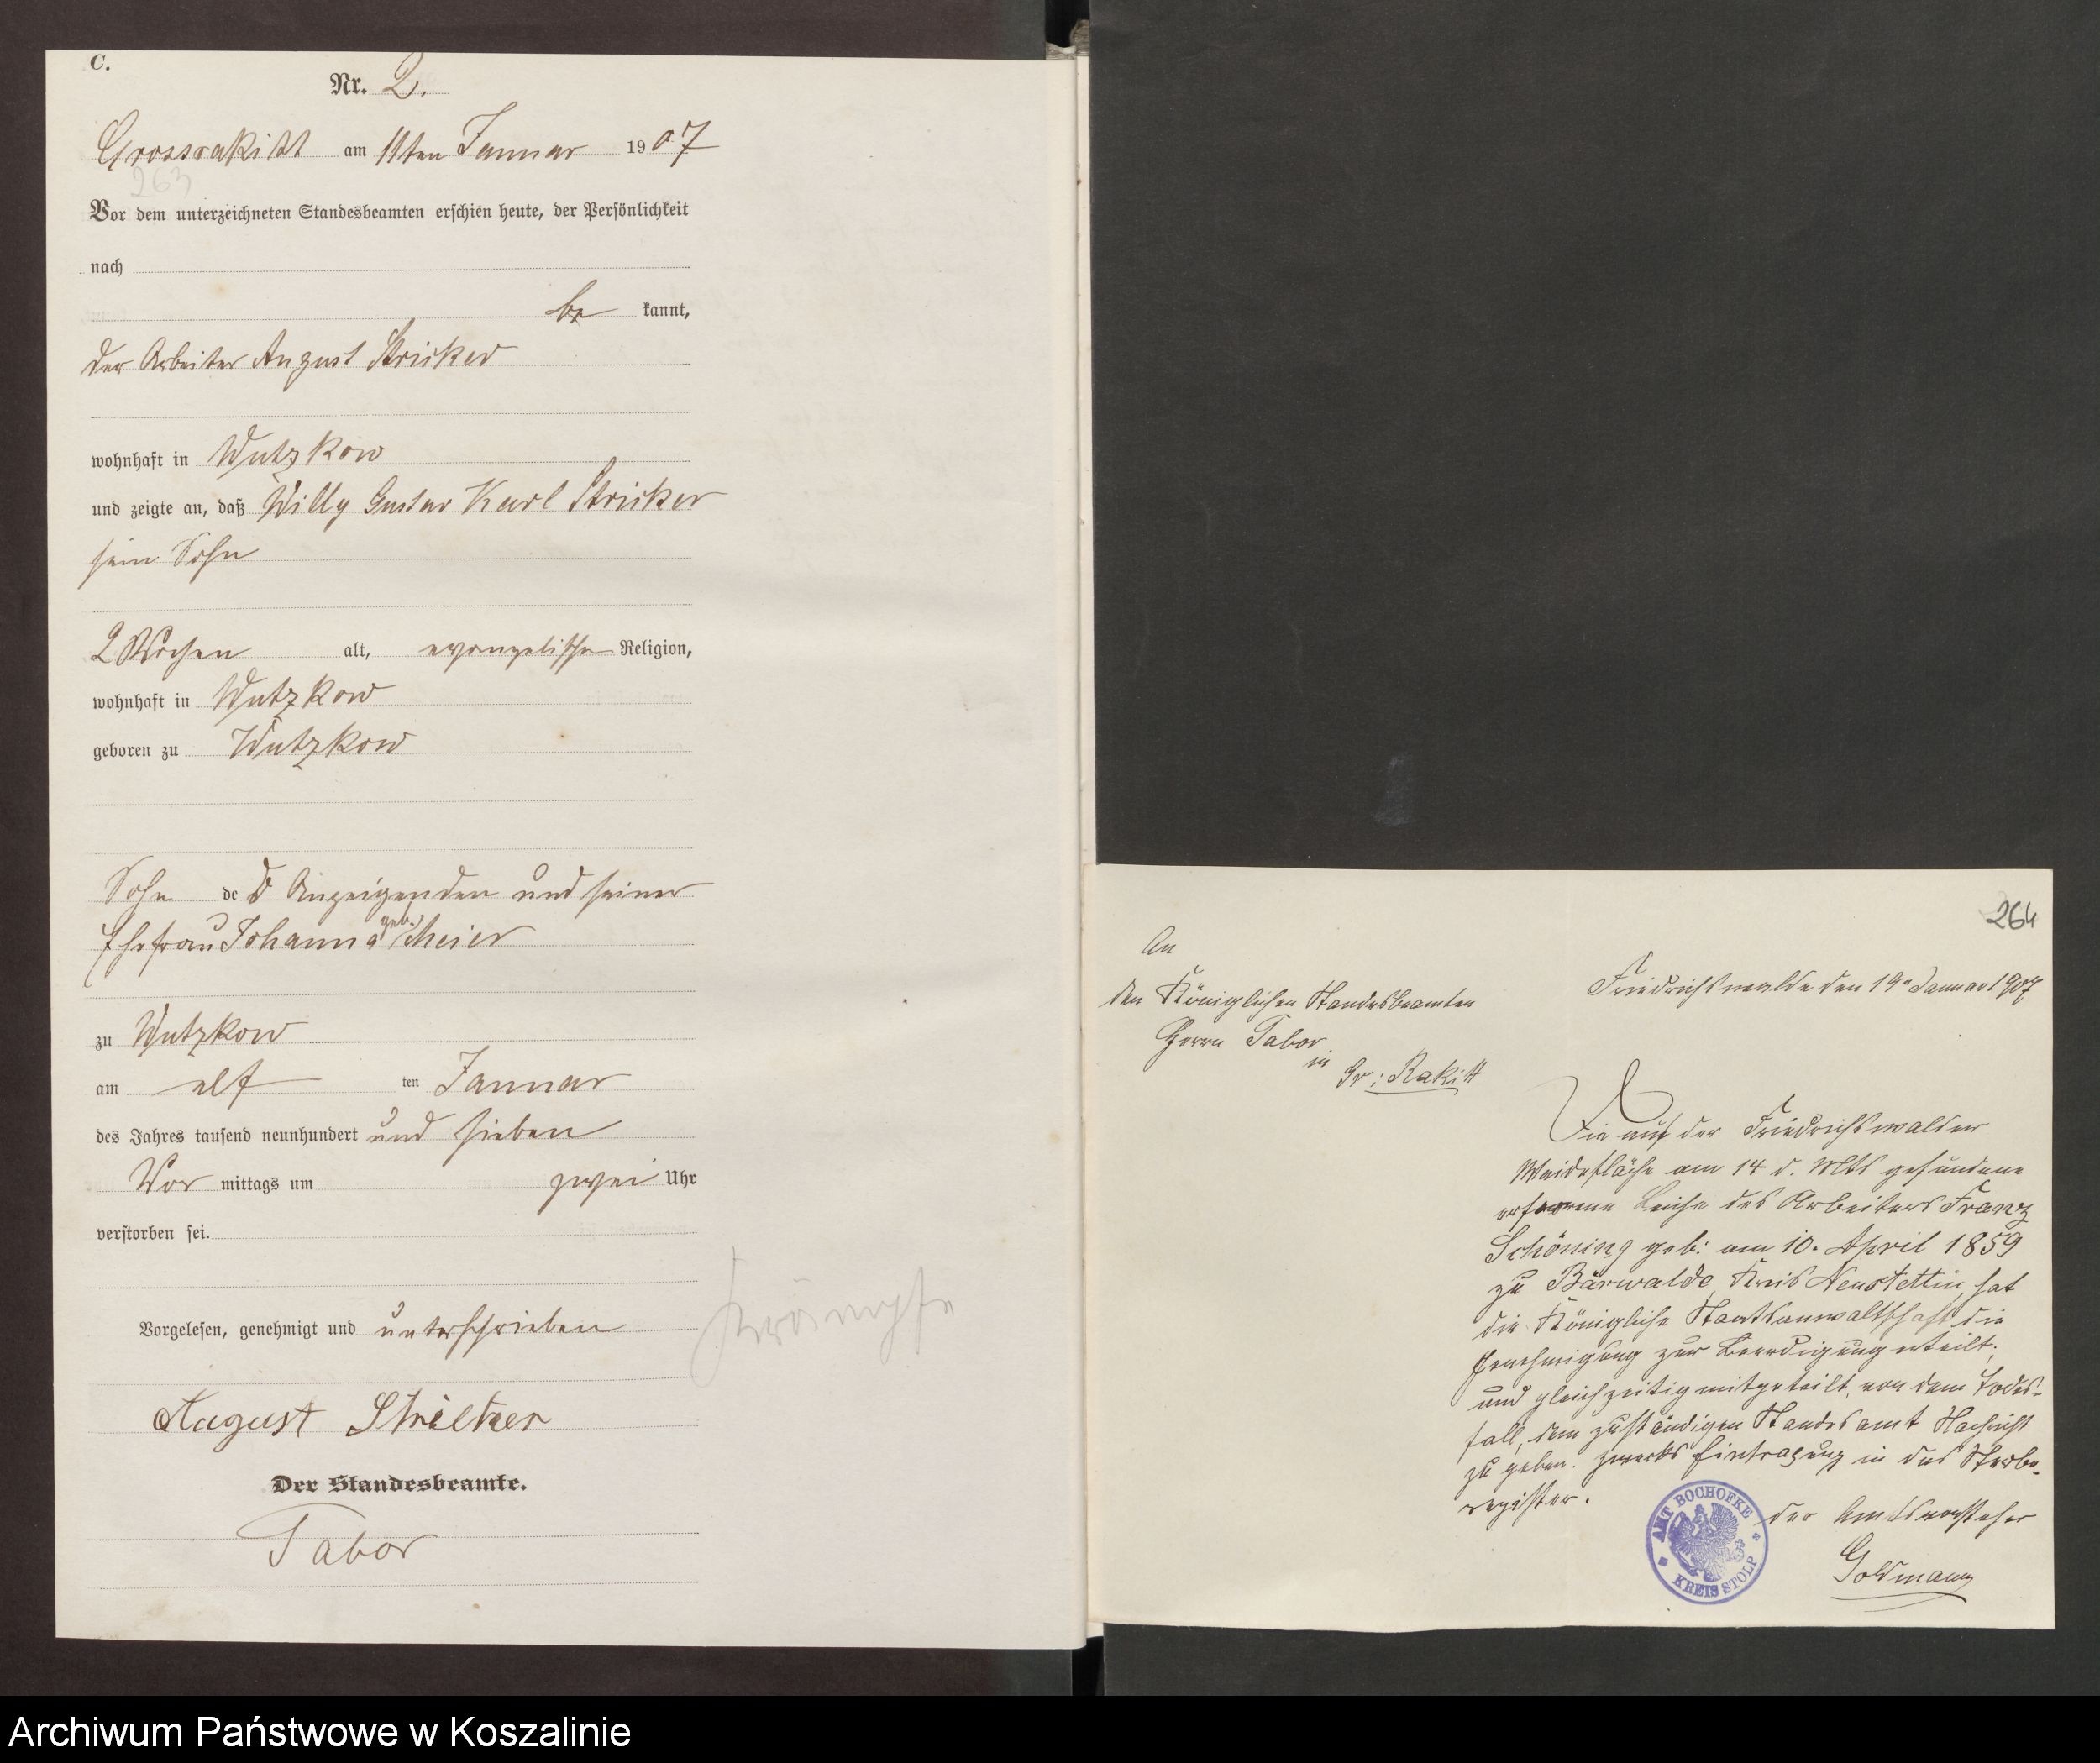 C.
Nr. 2.
Grossrakitt am 11ten Januar 1907
263
Vor dem unterzeichneten Standesbeamten erschien heute, der Persönlichkeit
nach
be kannt,
der Arbeiter August Stricker
wohnhaft in Wutzkow
und zeigte an, daß Willy Gustav Karl Stricker
sein Sohn
2 Wochen alt, evangelischer Religion,
wohnhaft in Wutzkow
geboren zu Wutzkow
Sohn des Anzeigenden und seiner
Ehefrau Johanna geb. Meier
zu Wutzkow
am elf ten Januar
des Jahres tausend neunhundert und sieben
Vor mittags um zwei Uhr
verstorben sei.
Vorgelesen, genehmigt und unterschrieben
Krämpfe
August
Der Standesbeamte.
Tabor
264
An
den Königlichen Standesbeamten
Herrn Tabor
in
Gr: Rakitt
Friedrichswalde den 19. Januar 1907
Die auf der Friedrichswalder
Weidefläche am 14 d. Mts gefundene
erfrorene Leiche des Arbeiters Franz
Schöning geb: am 10. April 1859
zu Bärwalde, Kreis Neustettin, hat
die Königliche Staatsanwaltschaft die
Genehmigung zur Beerdigung erteilt,
und gleichzeitig mitgeteilt, von dem Todes-
fall, dem zuständigen Standesamt Nachricht
zu geben. zwecks Eintragung in das Sterbe-
register.
der Amtsvorsteher
Goldmann
AMT BOCHOFKE
KREIS STOLP
Archiwum Państwowe w Koszalinie